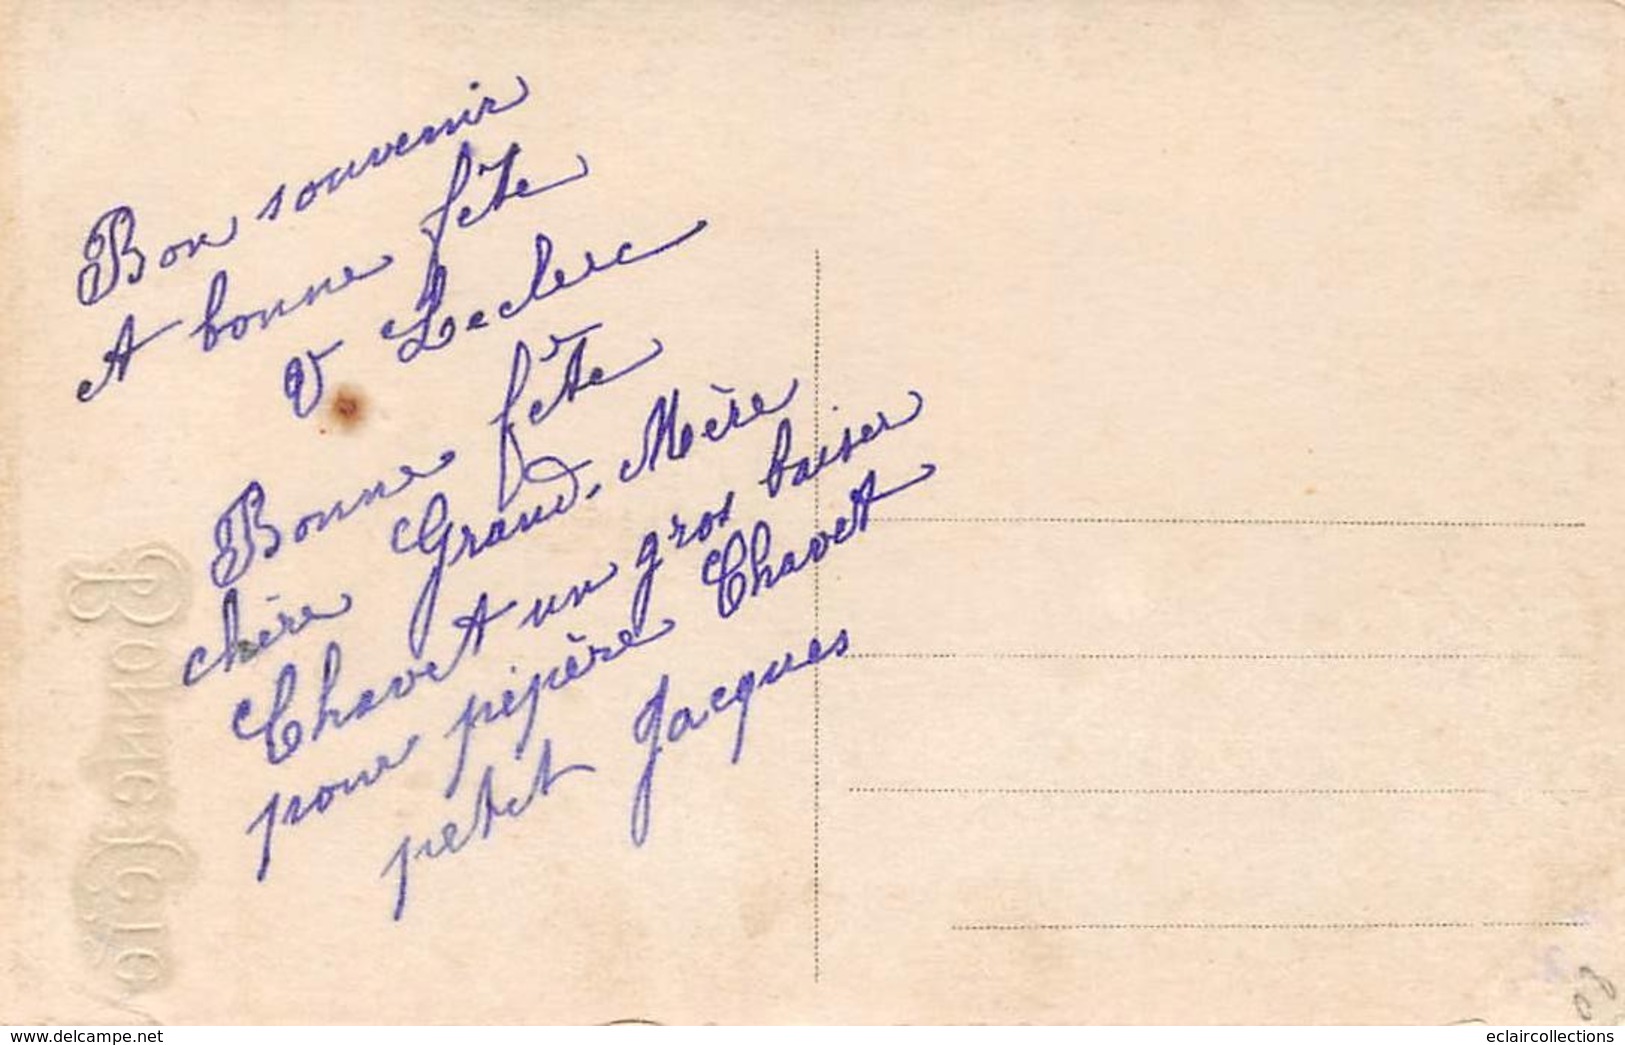 Bon souvenir
A bonne fête
V Leclerc
Bonne fête
chère Grand-Mère
Chavet un gros baiser
pour pépère Chavet
petit Jacques
Bonne Fête
60
eclaircollections